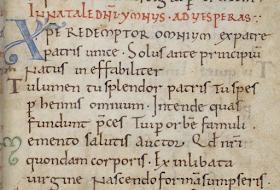 IN NATALE DNI YMNUS · AD UESPERAS:
XPE REDEMPTOR OMNIUM ex patre
patris unice · Solus ante principiū
natus ineffabiliter
Tu lumen tu splendor patris Tu spes
phennis omnium · Intende quas
fundunt pces Tui por be famuli ·
emento salutis auctor Qđ nri
quondam corporis · Ex inlibata
uirgine Nascendo formā sumpseris